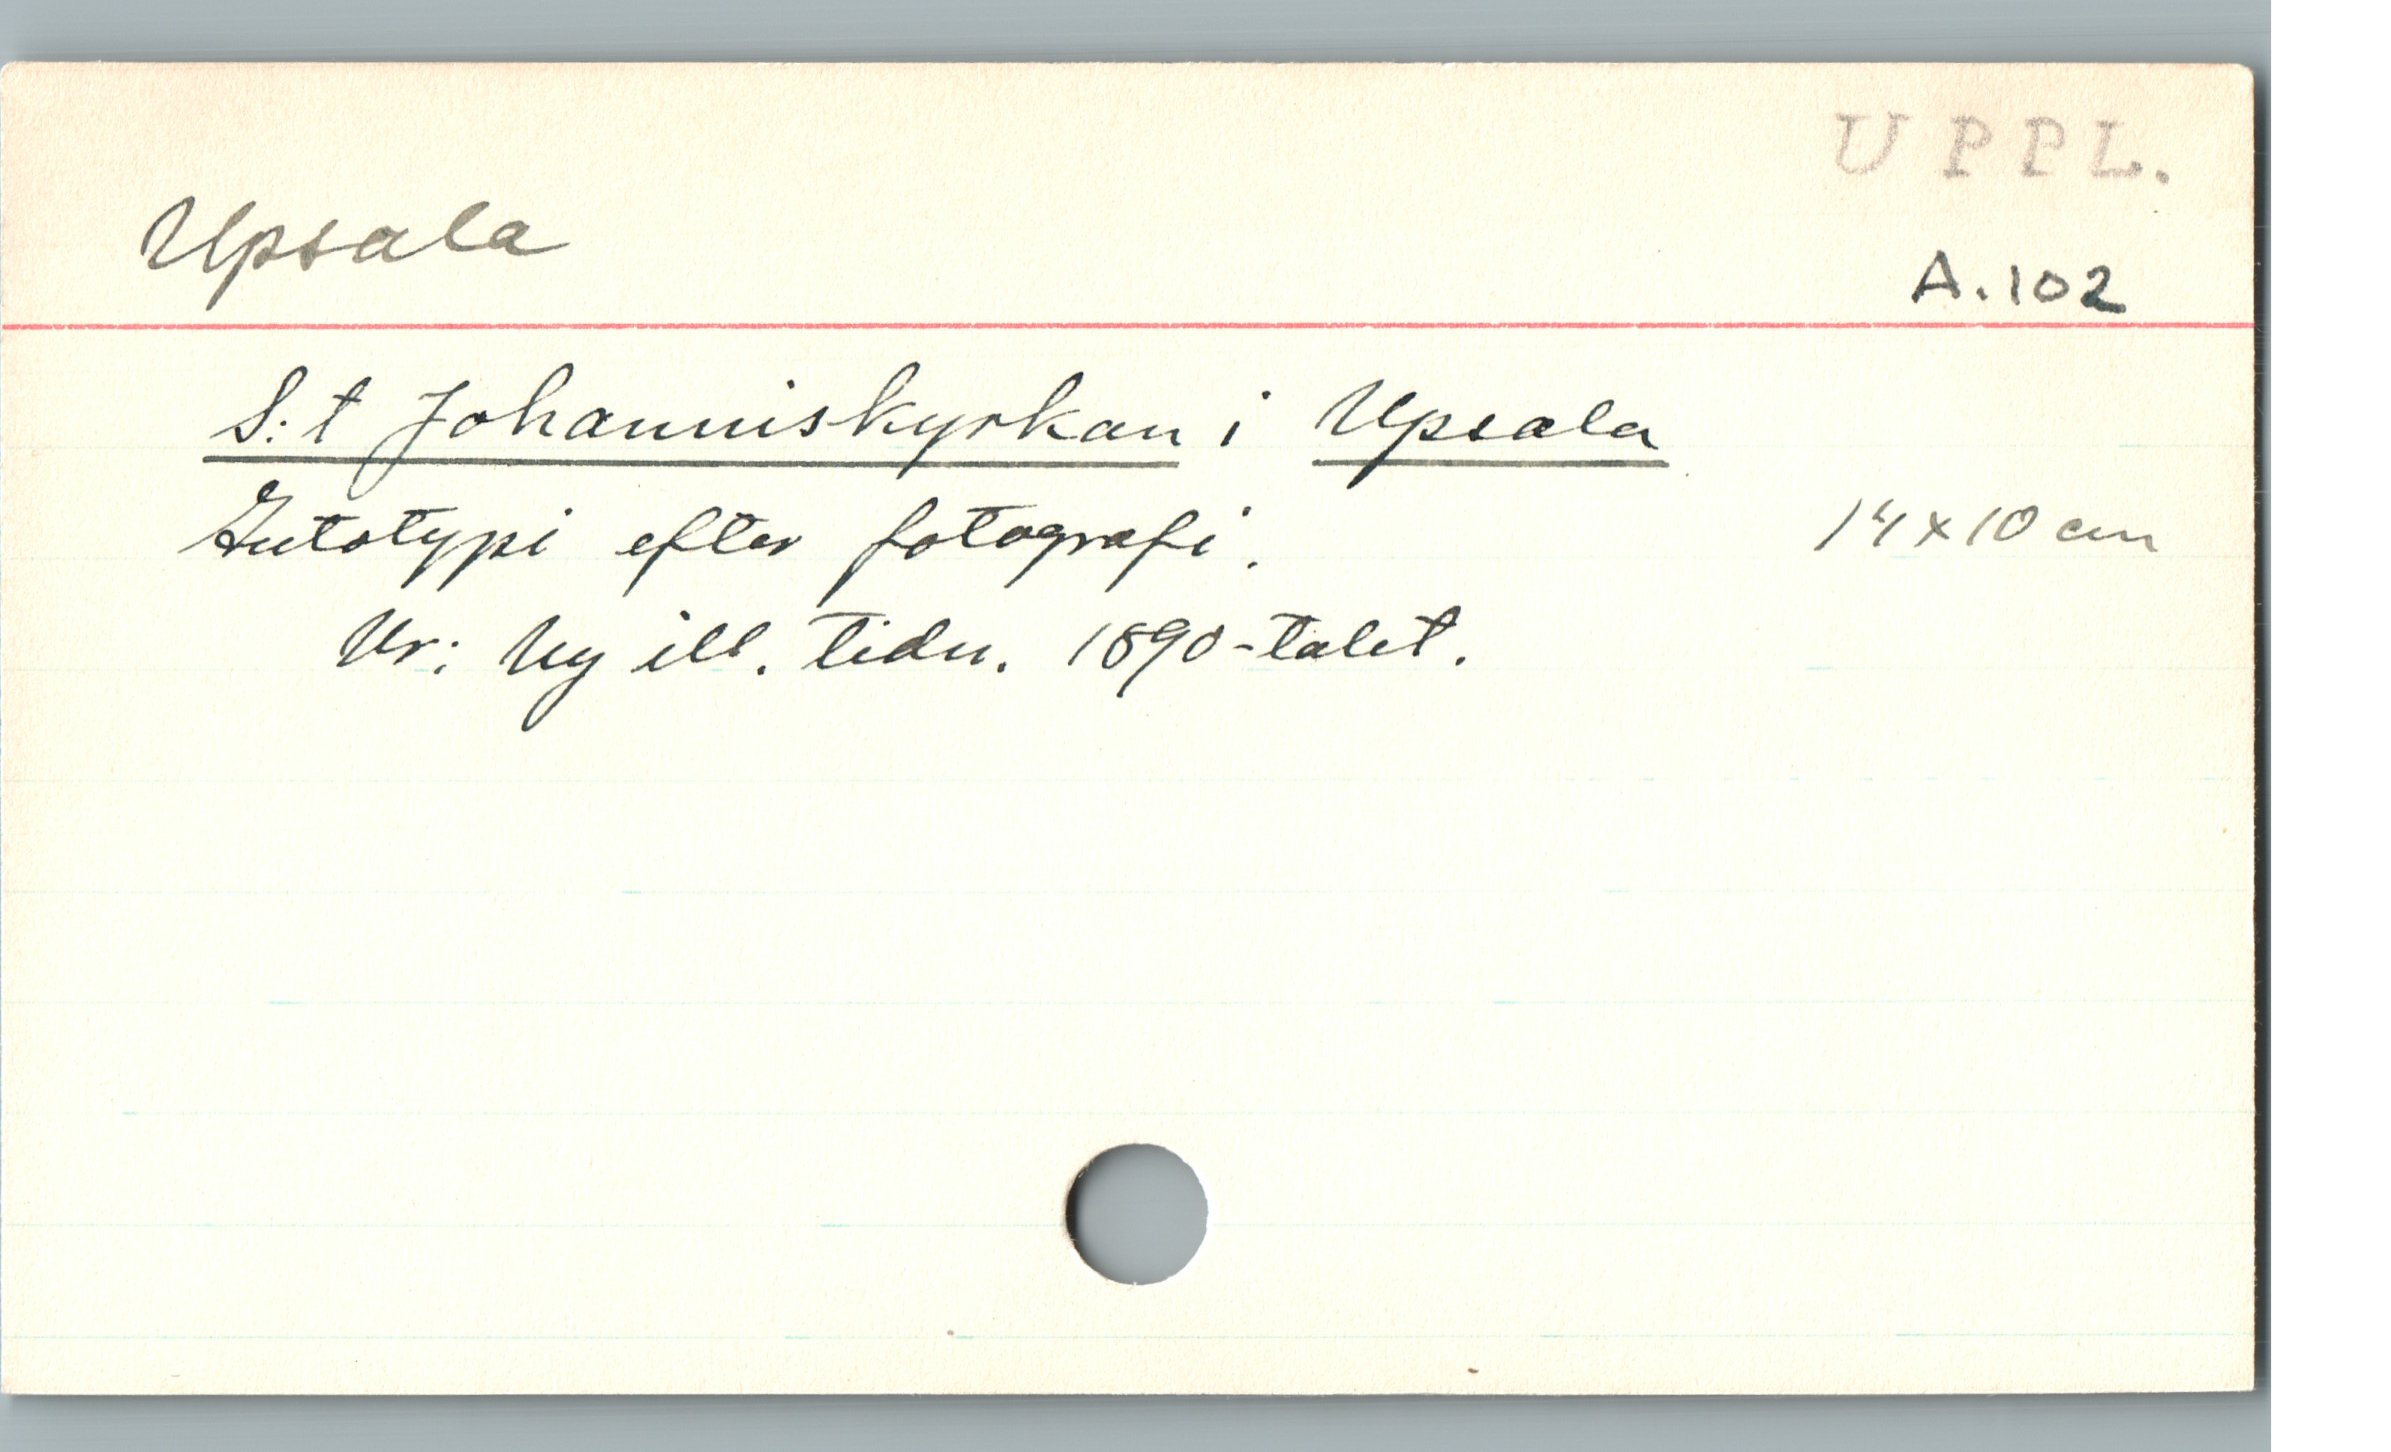 UPPL.
Upsala
A. 102
S:t Johanniskyrkan i Upsala
Autotypi efter fotografi.
14 x 10 cm
Ur: Ny ill. tidn. 1890-talet.